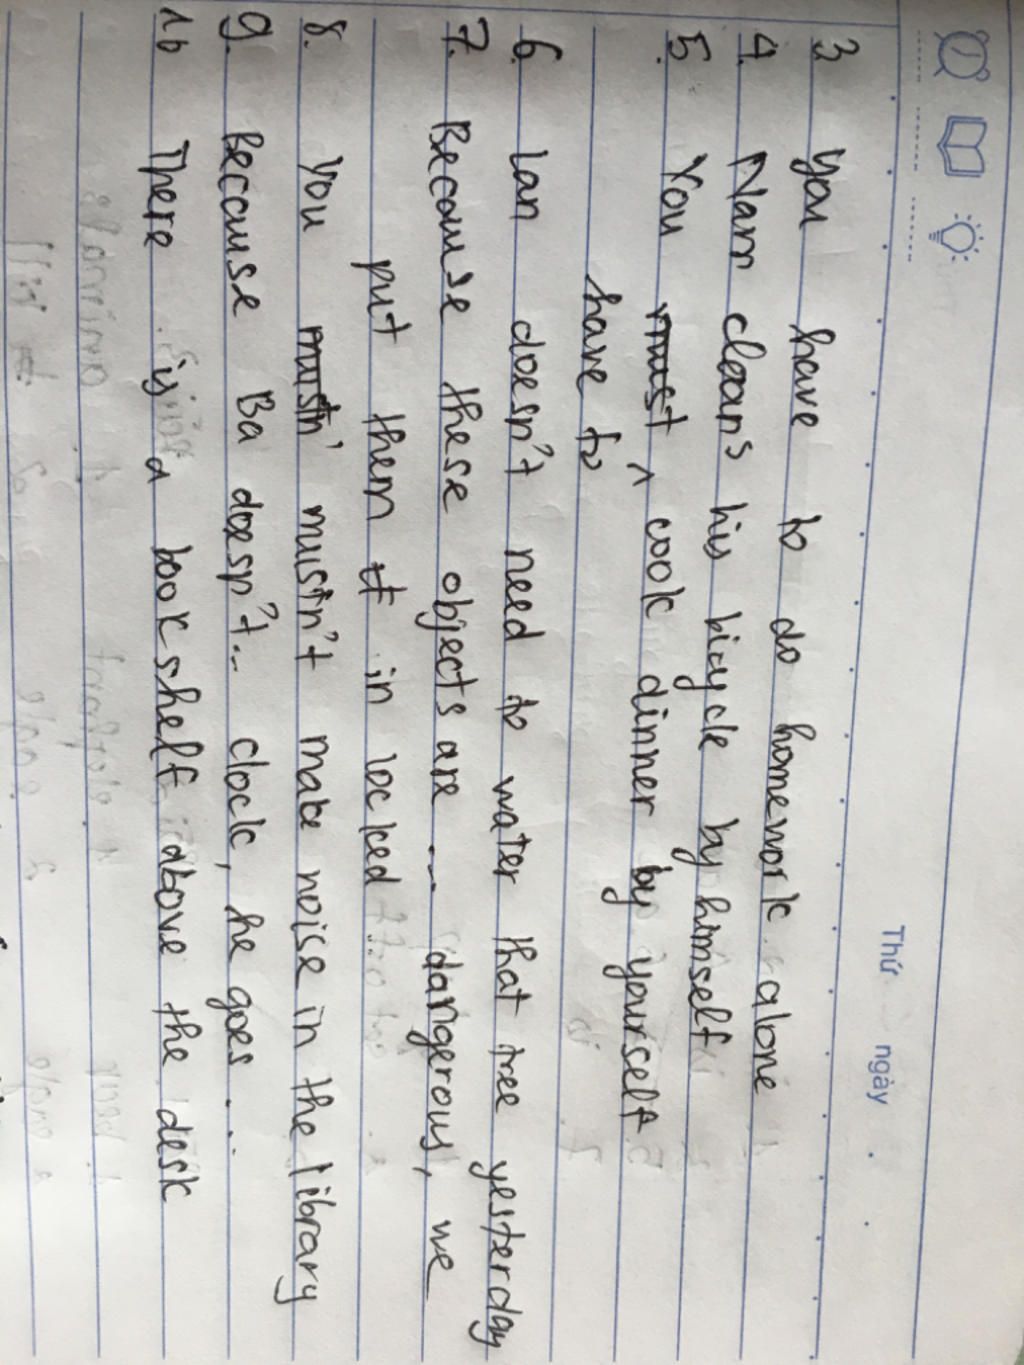 Thứ ngày
3 You have to do homework alone
4. Nam cleans his bicycle by himself
5. You must ^ cook dinner by yourself
have to
6. Lan doesn't need to water that tree yesterday
7. Because these objects are ... dangerous, we
put them it in locked
8. You mustn' mustn't make noise in the library
9. Because Ba doesn't... clock, he goes...
10 There is a bookshelf above the desk